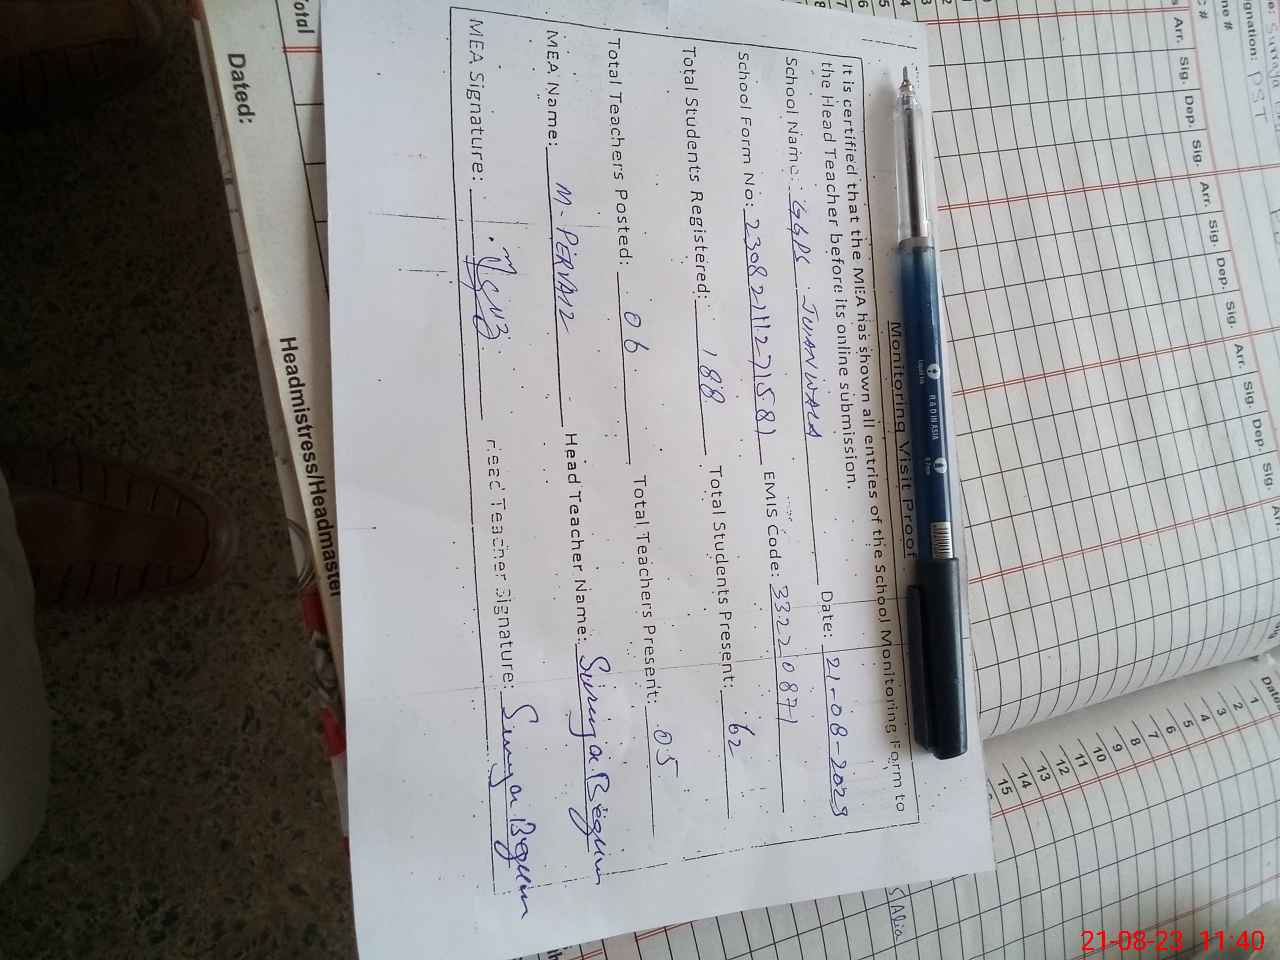 Monitoring Visit Proof
It is certified that the MEA has shown all entries of the School Monitoring Form to
the Head Teacher before its online submission.
School Name: GGPS JWANWALA Date: 21-08-2023
School Form No: 2308211271581 EMIS Code: 33220871
Total Students Registered: 188 Total Students Present: 62
Total Teachers Posted: 06 Total Teachers Present: 05
MEA Name: M. PERVAIZ Head Teacher Name: Suraya Begum
MEA Signature: Head Teacher Signature: Suraya Begum
RADIN ASIA
Total
Dated:
Headmistress/Headmaster
gnation: PST
Arr. Sig. Dep. Sig. Arr. Sig. Dep. Sig. Arr. Sig. Dep. Sig.
1
2
3
4
5
6
7
8
9
10
11
12
13
14
15
21-08-23 11:40